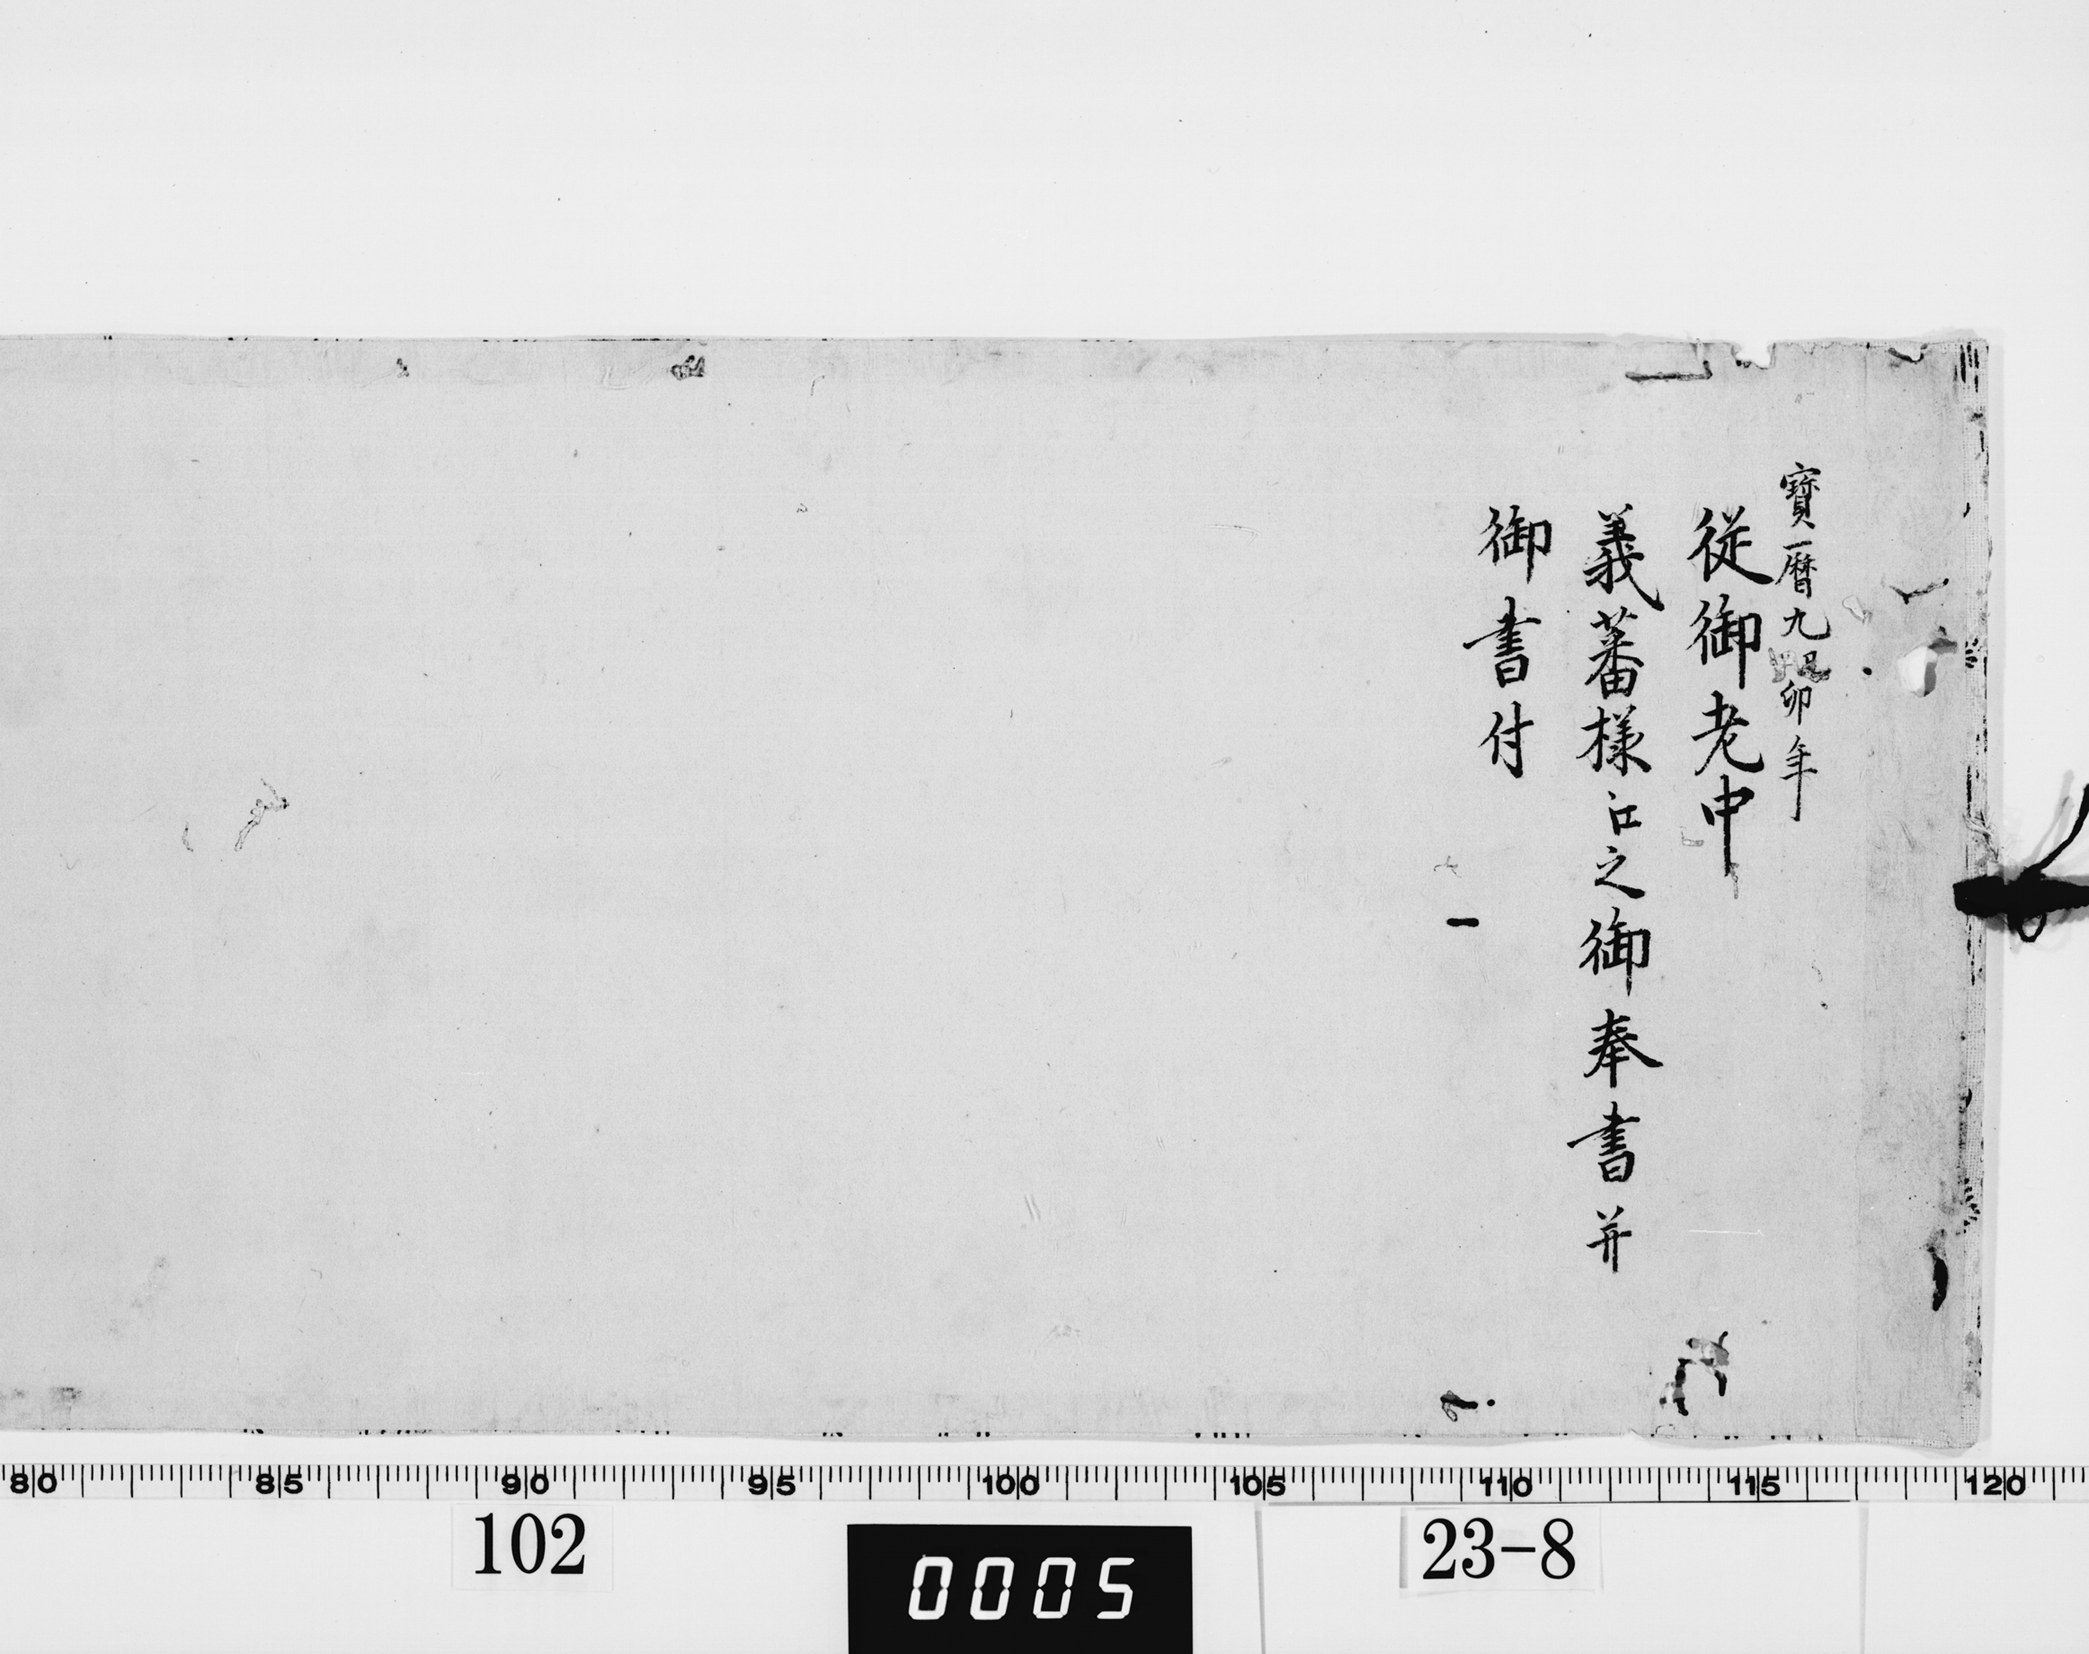 寶暦九己卯年
従御老中
義蕃様江之御奉書并
御書付
80 85 90 95 100 105 110 115 120
102
0005
23-8